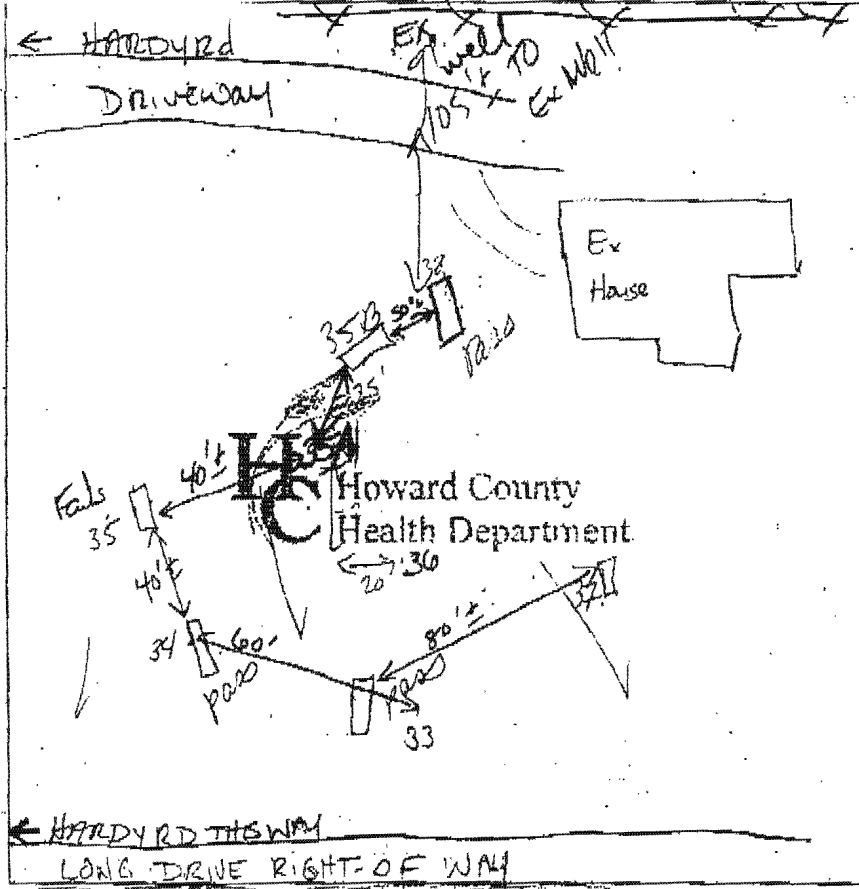 ← HARDY Rd
DRIVEWAY
Ex
well
105'± TO
Ex Well
Ex
House
50'±
35B
Pass
25'
35A
40'±
Fails
35
Howard County
Health Department
20'
36
40'±
34
60'
pass
80'±
pass
33
← HARDY RD THIS WAY
LONG DRIVE RIGHT-OF WAY